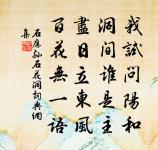 我試問陽和
洞間誰是主
盡日立東風
百花無一語
石屏孫石花洞詞典網
集